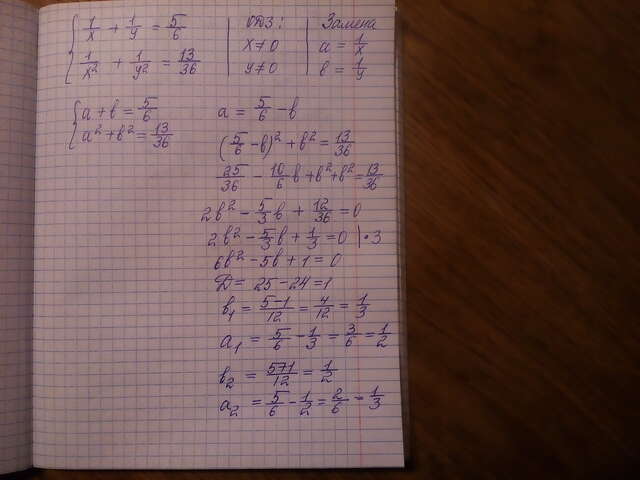 { 1/x + 1/y = 5/6
1/x² + 1/y² = 13/36
ОДЗ:
x≠0
y≠0
Замена
a = 1/x
b = 1/y
{ a + b = 5/6
a² + b² = 13/36
a = 5/6 - b
(5/6 - b)² + b² = 13/36
25/36 - 10/6 b + b² + b² = 13/36
2b² - 5/3 b + 12/36 = 0
2b² - 5/3 b + 1/3 = 0 | · 3
6b² - 5b + 1 = 0
Д = 25 - 24 = 1
b₁ = 5-1/12 = 4/12 = 1/3
a₁ = 5/6 - 1/3 = 3/6 = 1/2
b₂ = 5+1/12 = 1/2
a₂ = 5/6 - 1/2 = 2/6 = 1/3